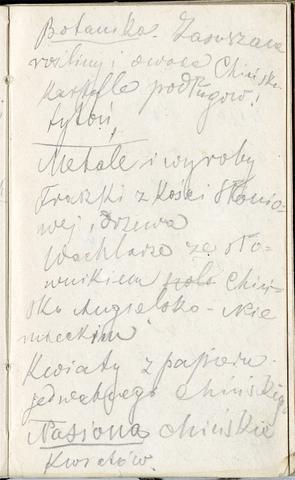 Botanika. Zasuszane
rośliny i owoce Chińskie
Kartofle podługow.
tytoń,
Metale i wyroby
Fraszki z Kości Słonio-
wej i drzewa
Wachlarze ze sło-
wnikiem Chiń-
sko Angielsko-Nie
mieckim
Kwiaty z papieru
jedwabnego chińskiego
Nasiona chińskie
Kwiatów.